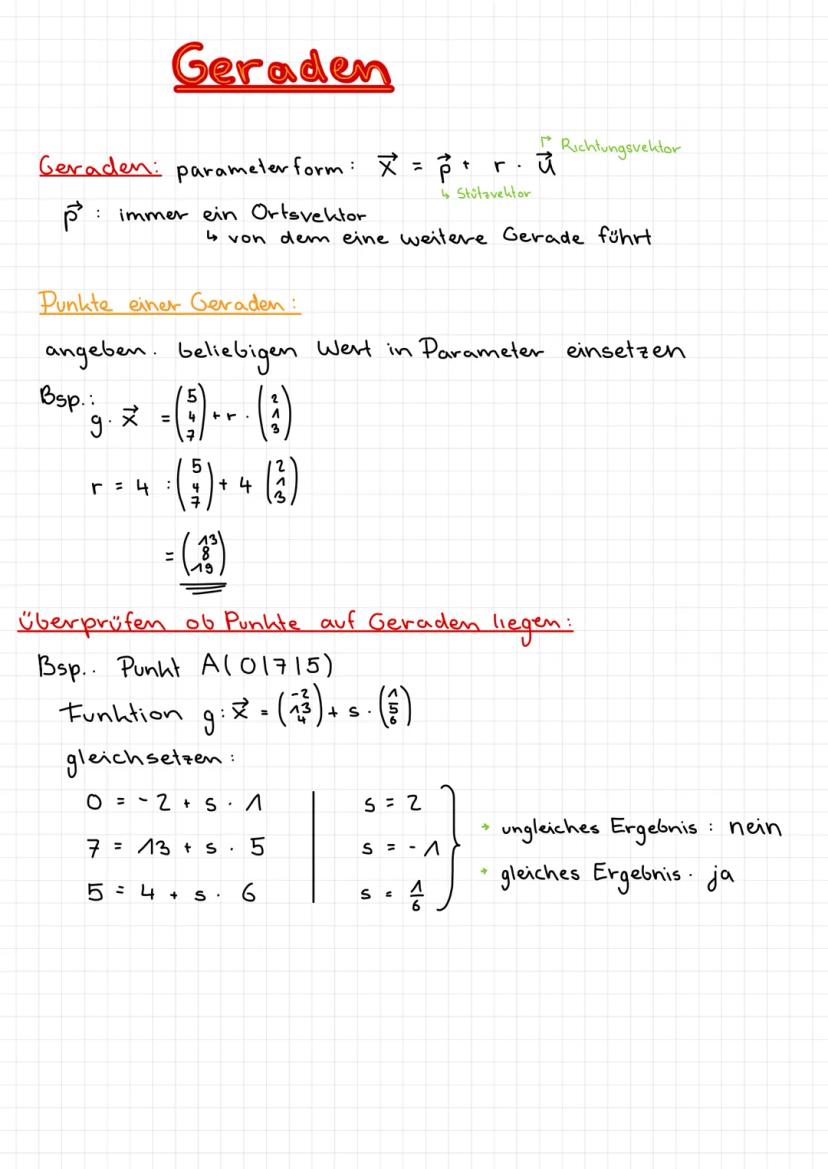 Geraden
Geraden: parameterform: x⃗ = p⃗ + r · u⃗
↱ Richtungsvektor
↳ Stützvektor
p⃗ : immer ein Ortsvektor
↳ von dem eine weitere Gerade führt
Punkte einer Geraden:
angeben. beliebigen Wert in Parameter einsetzen
Bsp.:
g. x⃗ = (5 4 7) + r · (2 1 3)
r = 4 : (5 4 7) + 4 (2 1 3)
= (13 8 19)
überprüfen ob Punkte auf Geraden liegen:
Bsp.. Punkt A(0|7|5)
Funktion g: x⃗ = (-2 13 4) + s · (1 5 6)
gleichsetzen:
0 = -2 + s · 1 | s = 2
7 = 13 + s · 5 | s = -1
5 = 4 + s · 6 | s = 1/6
→ ungleiches Ergebnis: nein
→ gleiches Ergebnis. ja